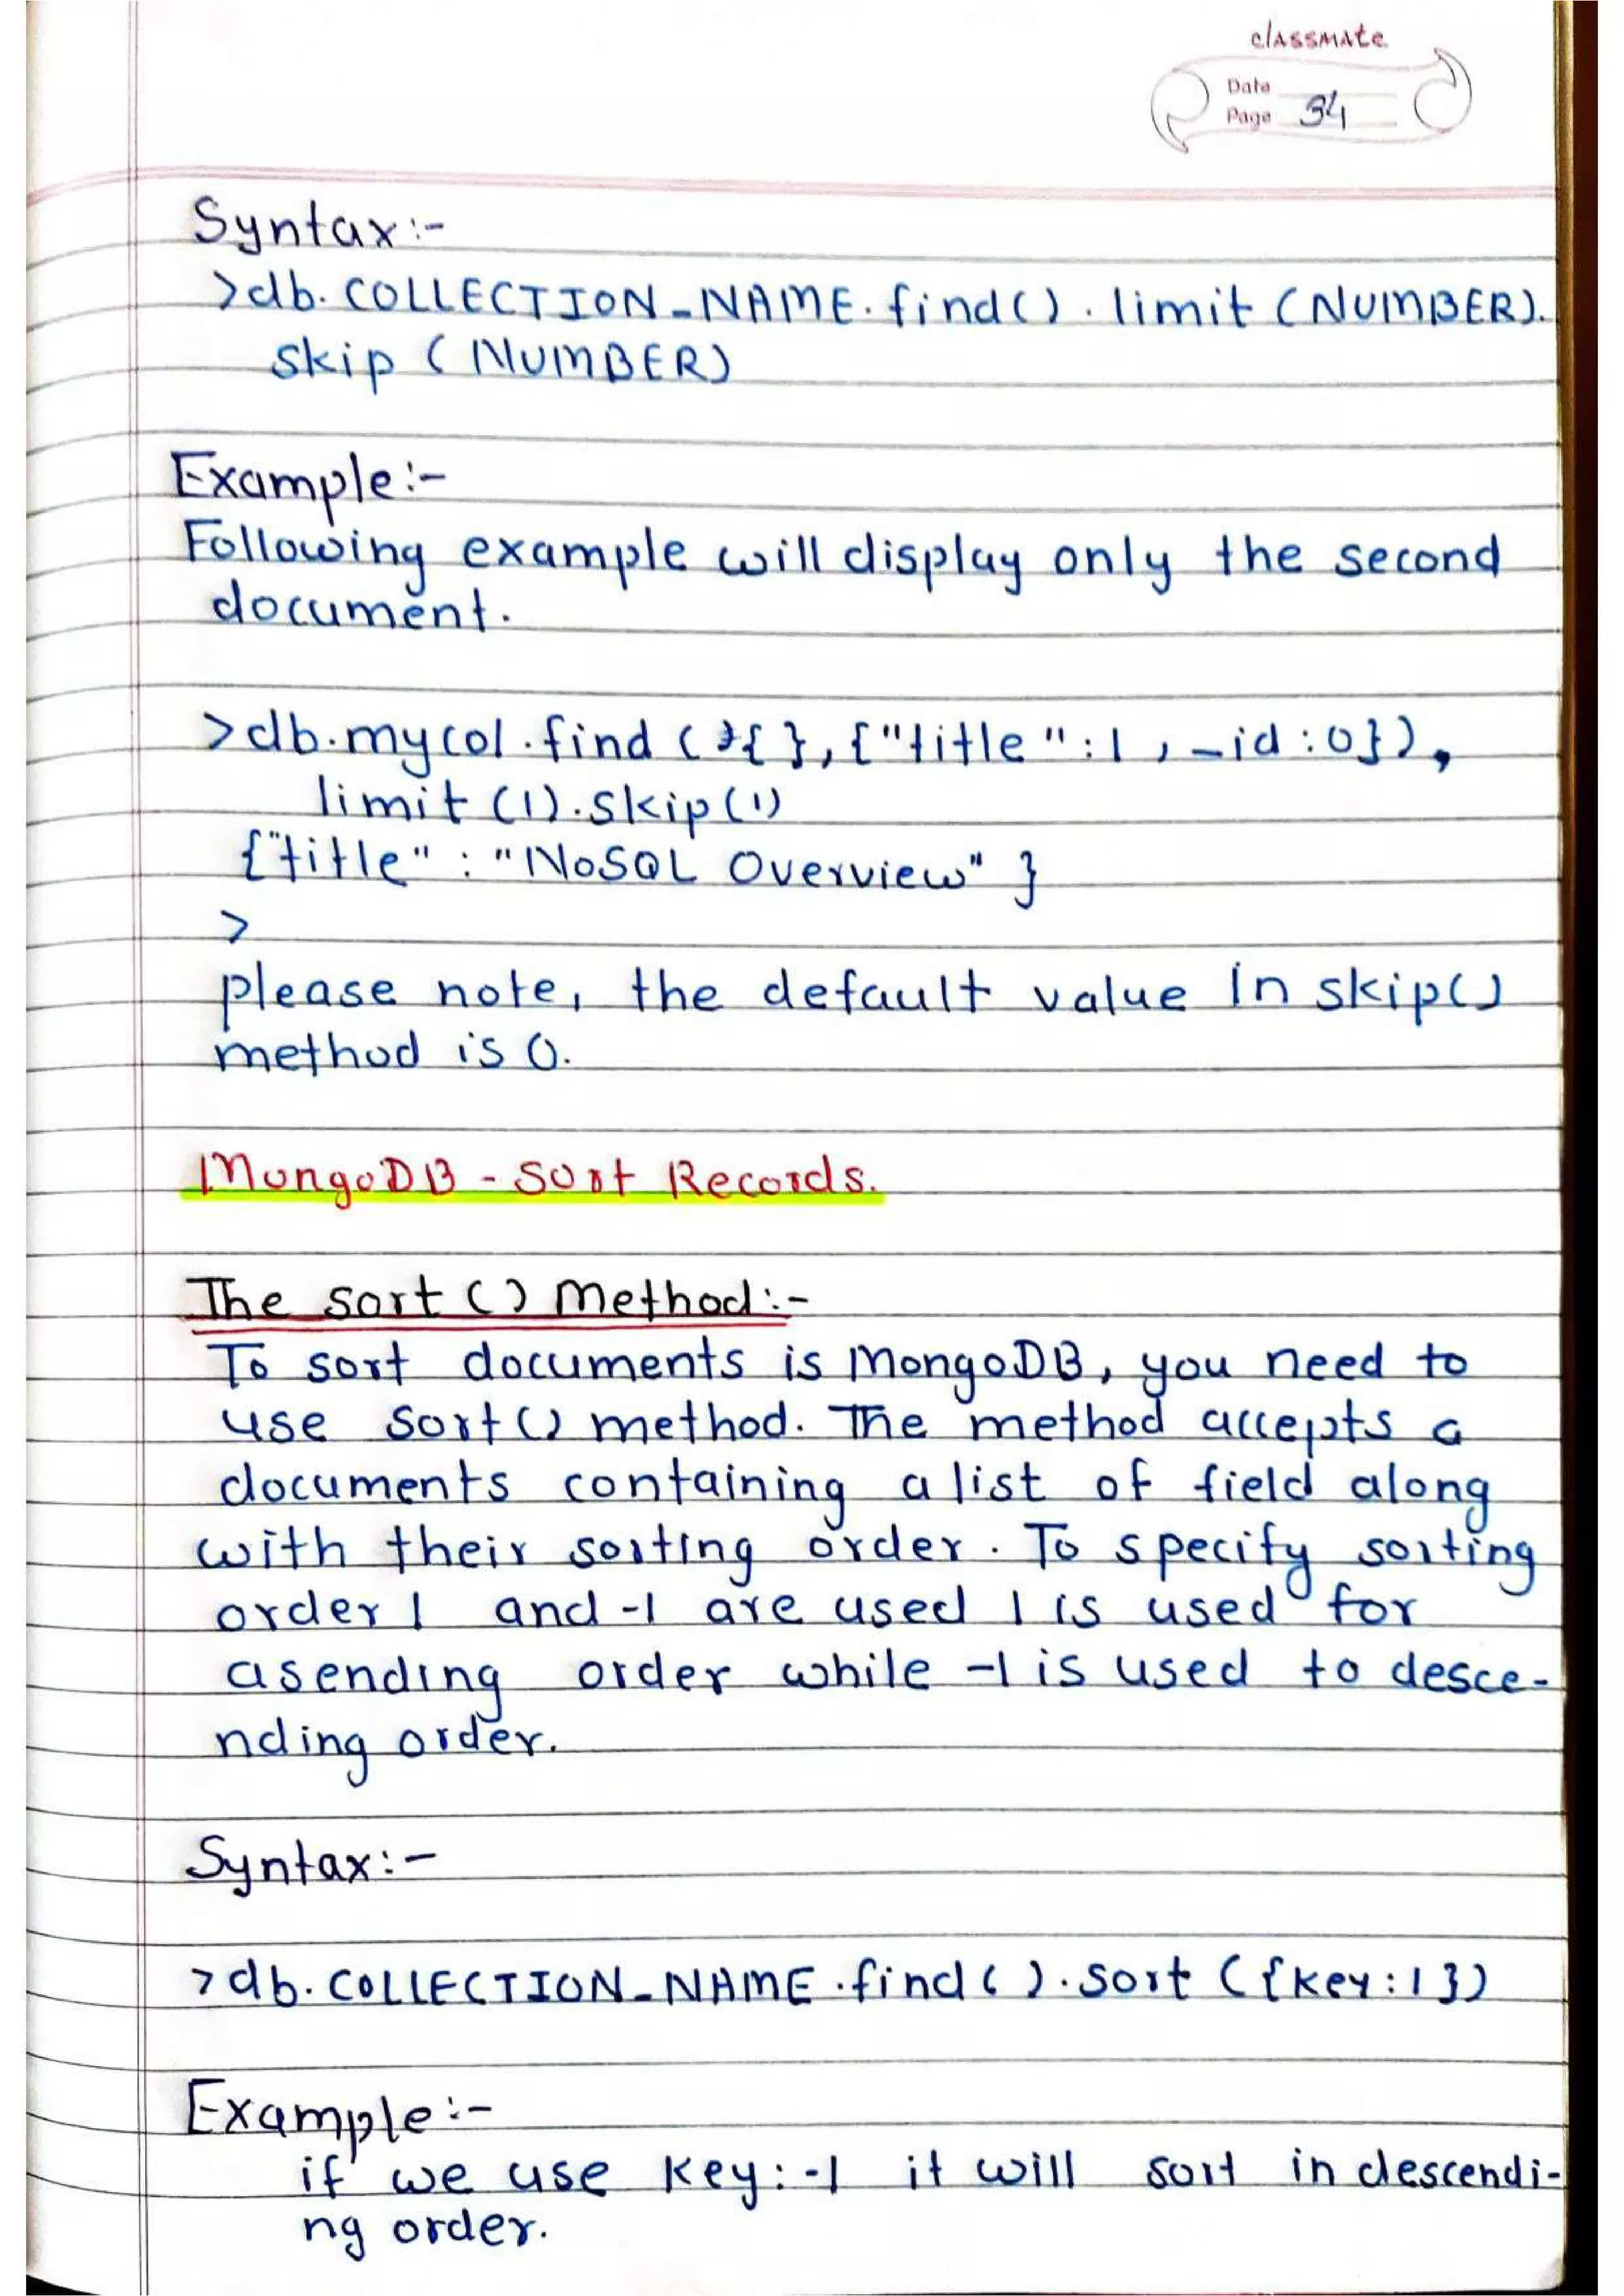 classmate
Date
Page 34
Syntax:-
>db.COLLECTION_NAME.find().limit(NUMBER).
skip(NUMBER)
Example:-
Following example will display only the second
document.
>db.mycol.find({},{"title":1,_id:0}),
limit(1).skip(1)
{"title" : "NoSQL Overview" }
>
please note, the default value In skip()
method is 0.
MongoDB - Sort Records.
The sort () Method:-
To sort documents is MongoDB, you need to
use sort() method. The method accepts a
documents containing a list of field along
with their sorting order. To specify sorting
order 1 and -1 are used 1 is used for
asending order while -1 is used to desce-
nding order.
Syntax:-
>db.COLLECTION_NAME.find().sort({Key:1})
Example:-
if we use Key:-1 it will sort in descendi-
ng order.